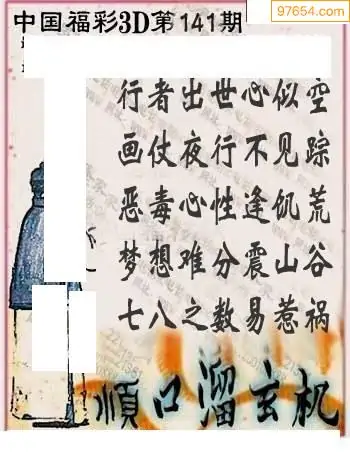 中国福彩3D第141期
97654.com
行者出世心似空
画仗夜行不见踪
恶毒心性逢饥荒
梦想难分震山谷
七八之数易惹祸
順口溜玄机